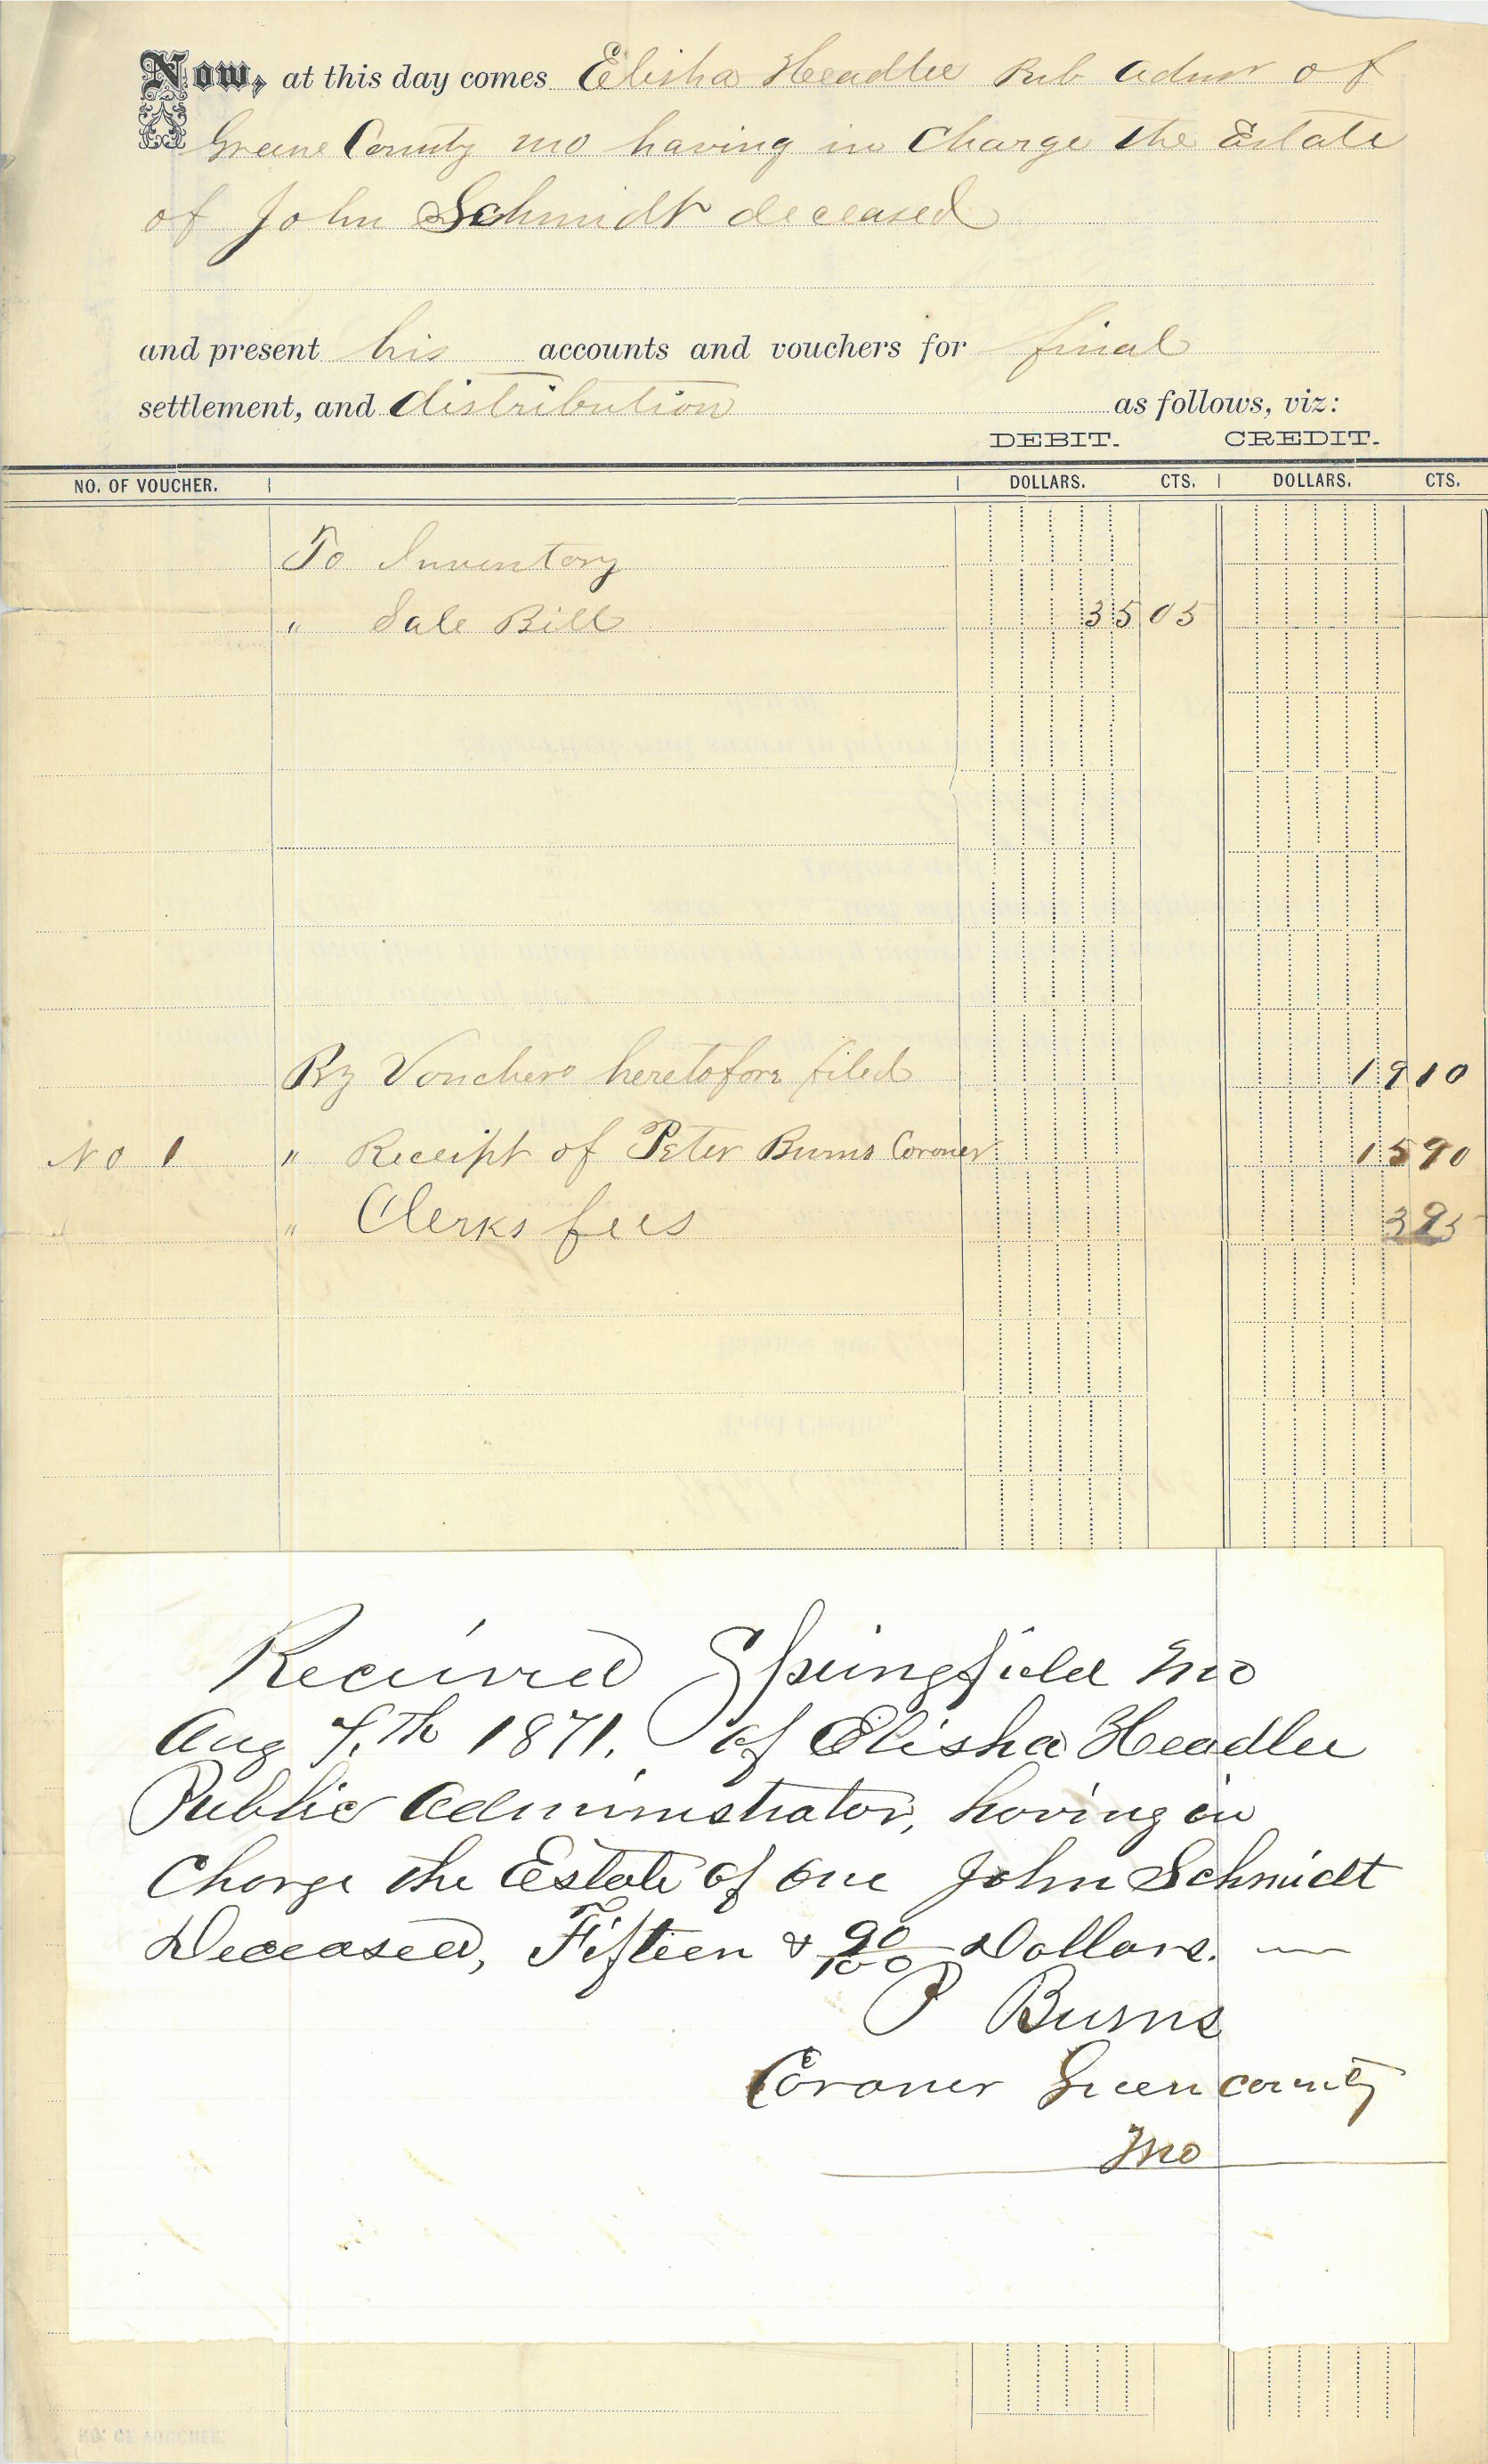 Now, at this day comes Elisha Headlee Pub Admr of
Greene County Mo having in Charge the Estate
of John Schmidt deceased
and present his accounts and vouchers for final
settlement, and distribution as follows, viz:
DEBIT. CREDIT.
NO. OF VOUCHER. DOLLARS. CTS. DOLLARS. CTS.
To Inventory
" Sale Bill 35 05
By Vouchers heretofore filed 19 10
No 1 " Receipt of Peter Burns Coroner 15 90
" Clerks fees 
Received Springfield Mo
Aug 7.th 1871. of Elisha Headlee
Public Administrator, having in
Charge the Estate of one John Schmidt
Deceased, Fifteen & 90/100 Dollars.
P Burns
Coroner Green County
Mo
NO. OF VOUCHER.